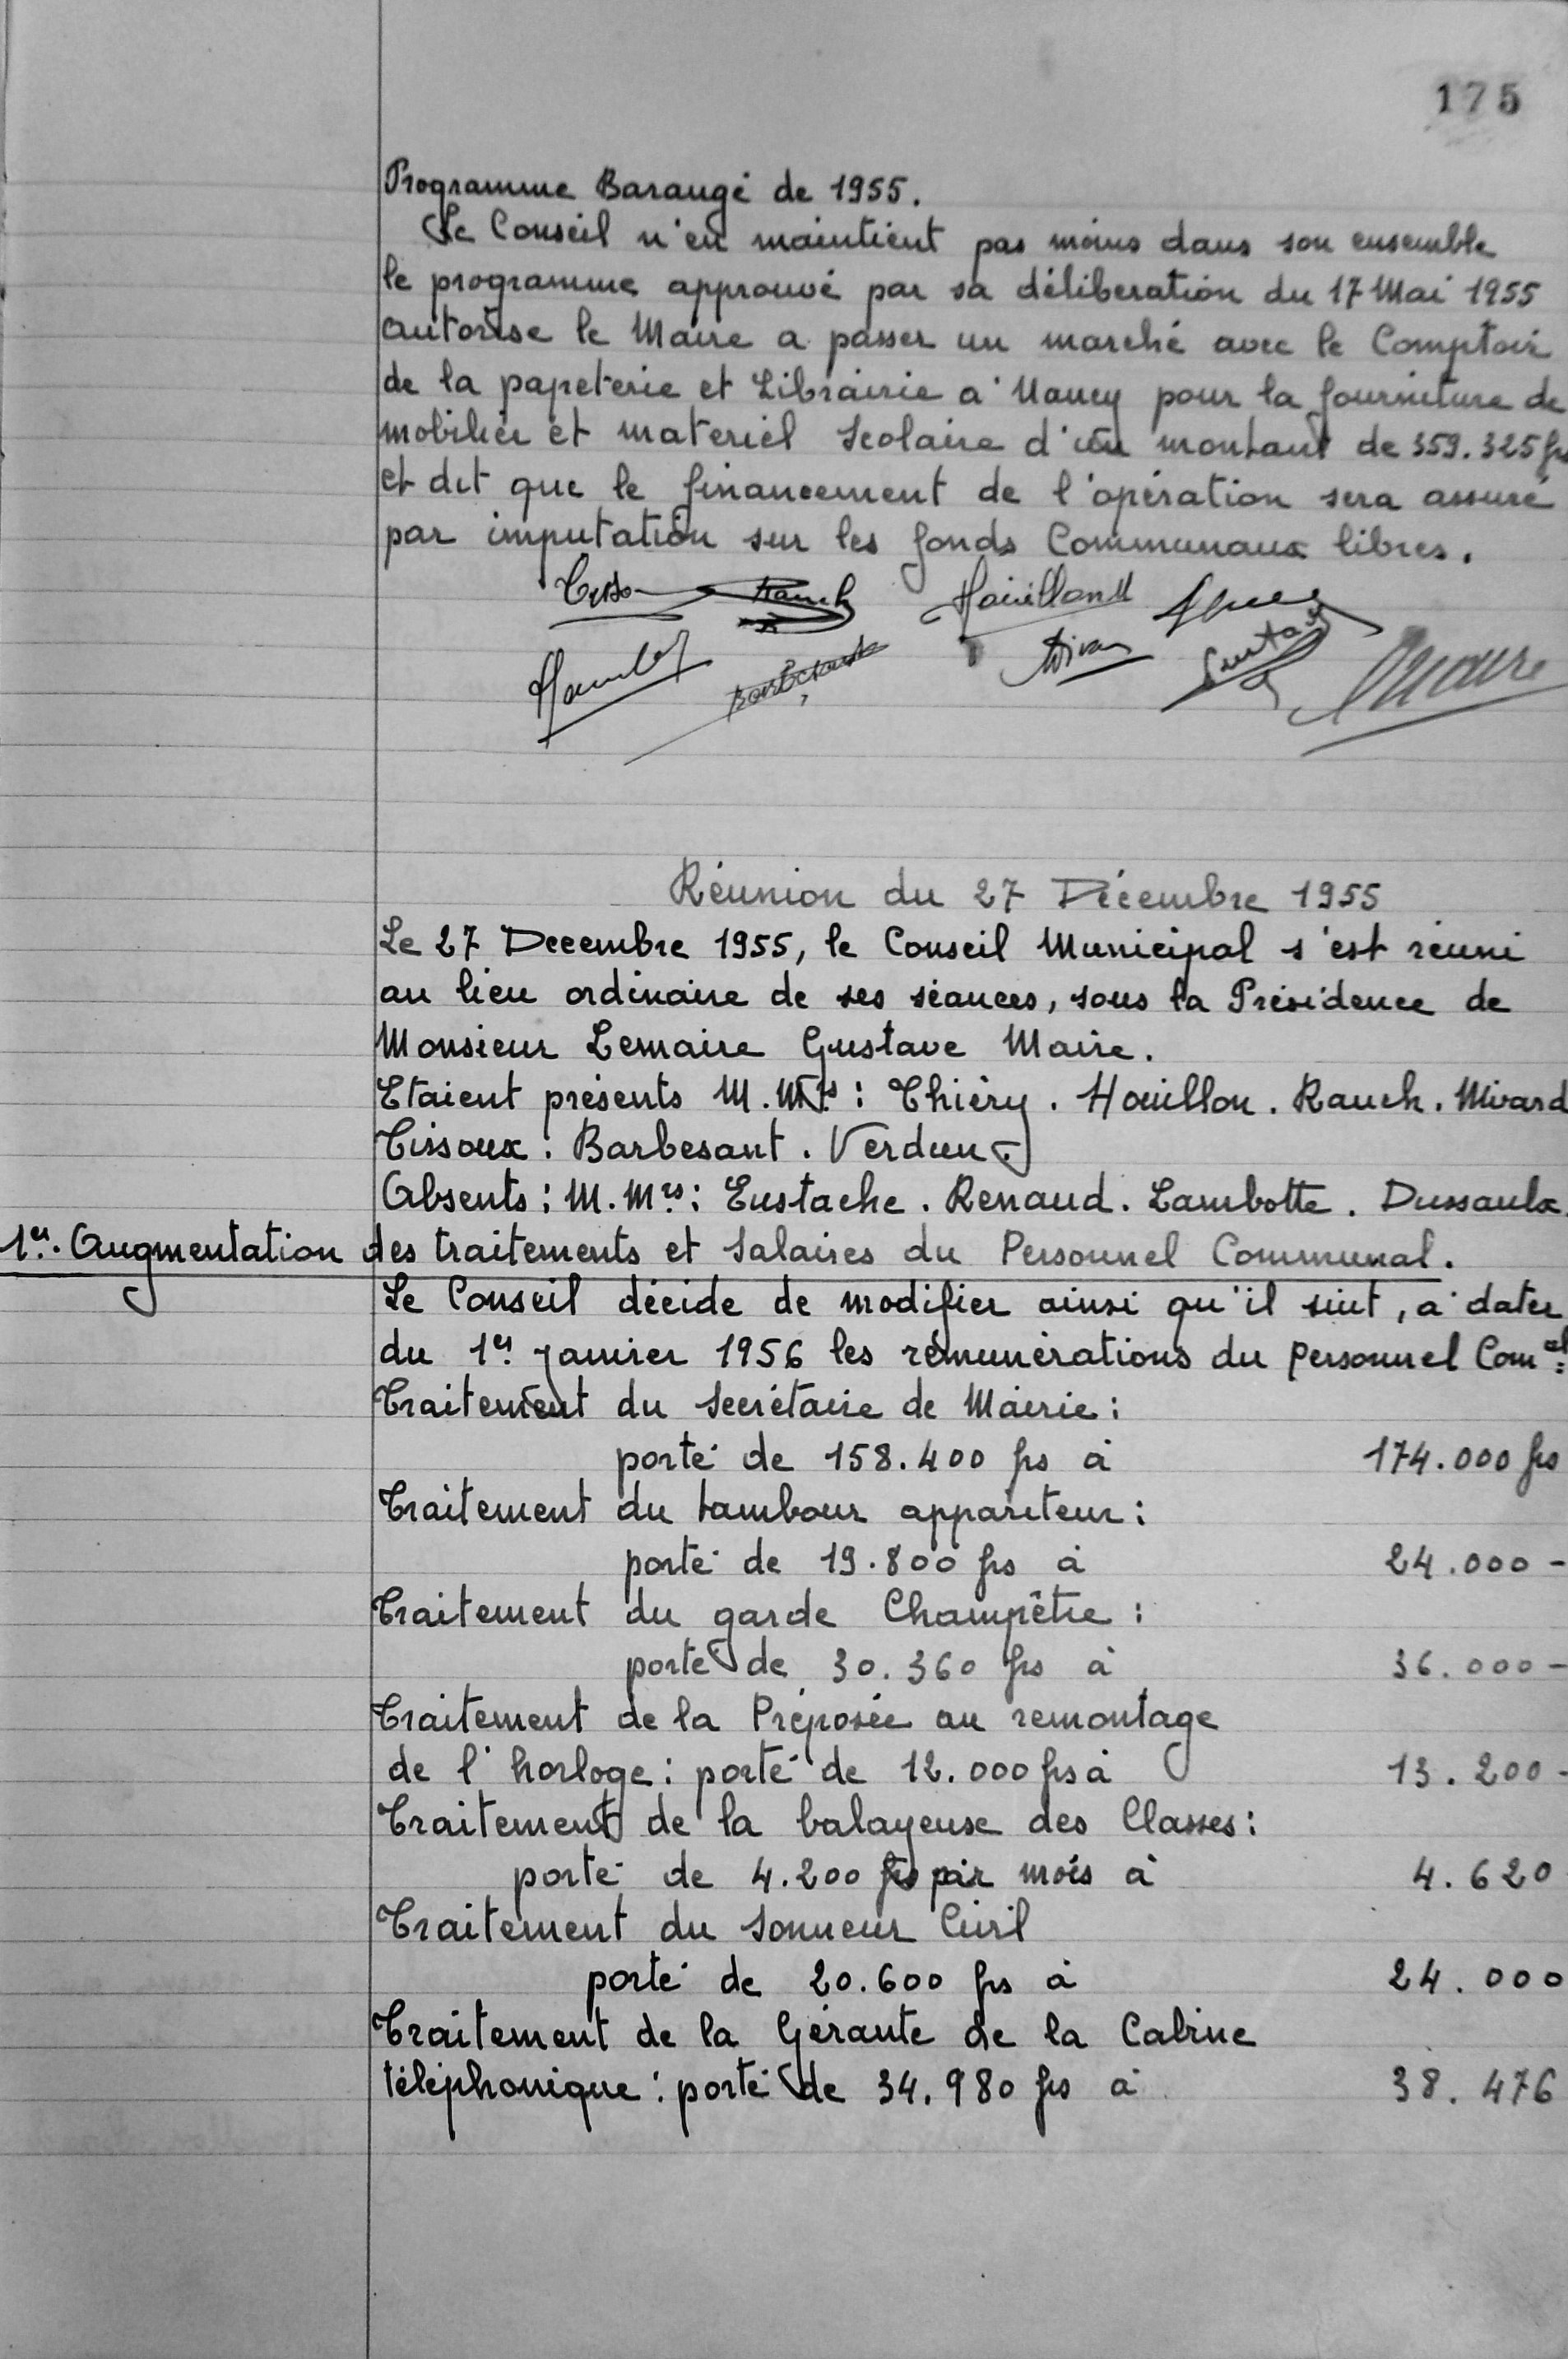 175
Programme Barangé de 1955.
Le Conseil n'en maintient pas moins dans son ensemble
le programme approuvé par sa déliberation du 17 Mai 1955
autorise le Maire a passer un marché avec le Comptoir
de la papeterie et Librairie a' Nancy pour la fourniture de
mobilier et materiel Scolaire d'un montant de 359.325 frs
et dit que le financement de l'opération sera assuré
par imputation sur les fonds Communaux libres.
Rauch Houillon
Réunion du 27 Décembre 1955
Le 27 Decembre 1955, le Conseil Municipal s'est réuni
au lieu ordinaire de ses séances, sous la Présidence de
Monsieur Lemaire Gustave Maire.
Etaient présents M.Mrs : Thiéry . Houillon . Rauch . Mirard
Tissoux . Barbesant . Verdun .
Absents : M.Mrs : Eustache . Renaud . Lambotte . Dussaulx.
1er. Augmentation des traitements et Salaires du Personnel Communal.
Le Conseil décide de modifier ainsi qu'il suit, a' dater
du 1er janvier 1956 les rémunérations du personnel Comal :
Traitement du Secrétaire de Mairie :
porté de 158.400 frs à 174.000 frs
Traitement du tambour appariteur :
porté de 19.800 frs à 24.000 -
Traitement du garde Champêtre :
porté de 30.360 frs à 36.000 -
Traitement de la Préposée au remontage
de l'horloge : porté de 12.000 frs à 13.200 -
Traitement de la balayeuse des Classes :
porté de 4.200 frs par mois à 4.620
Traitement du Sonneur Civil
porté de 20.600 frs à 24.000
Traitement de la Gérante de la Cabine
téléphonique : porté de 34.980 frs à 38.476